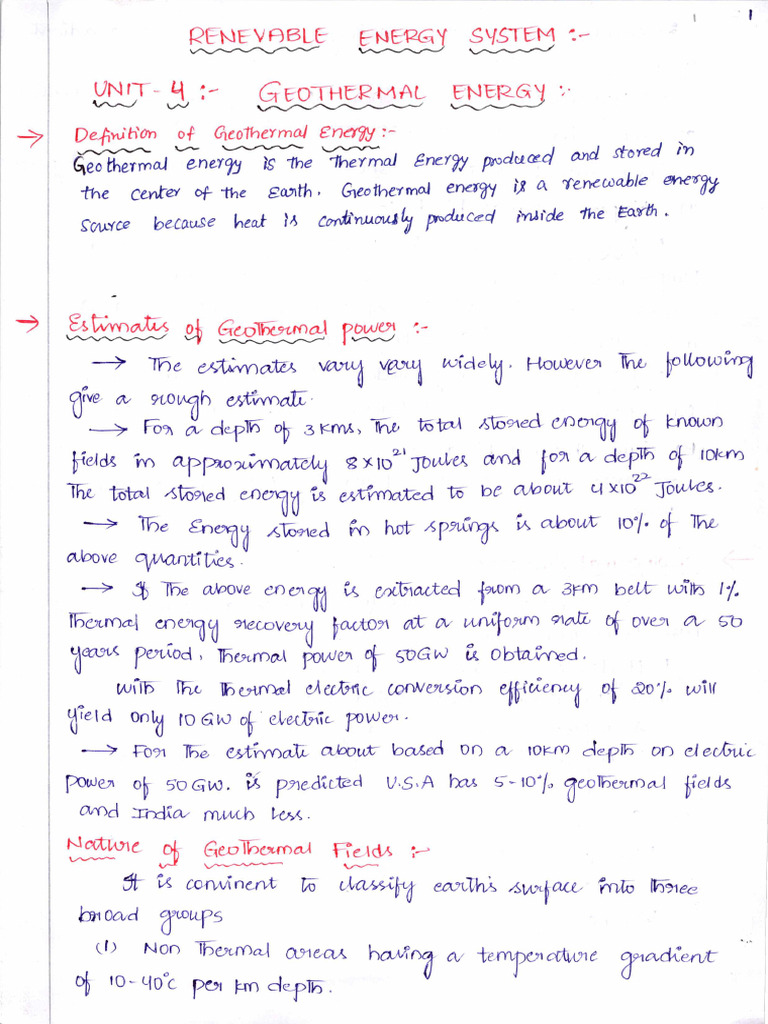 1 1
RENEVABLE ENERGY SYSTEM :-
UNIT - 4 :- GEOTHERMAL ENERGY :-
→ Definition of Geothermal Energy :-
Geothermal energy is the Thermal Energy produced and stored in
the center of the Earth. Geothermal energy is a renewable energy
source because heat is continuously produced inside the Earth.
→ Estimates of Geothermal power :-
→ The estimates vary vary widely. However The following
give a rough estimate.
→ For a depth of 3 kms, The total stored energy of known
fields in approximately 8×10²¹ Joules and for a depth of 10km
The total stored energy is estimated to be about 4×10²² Joules.
→ The Energy stored in hot springs is about 10% of The
above quantities.
→ If The above energy is extracted from a 3km belt with 1%
Thermal energy recovery factor at a uniform rate of over a 50
years period, Thermal power of 50GW is obtained.
With The Thermal electric conversion efficiency of 20% will
yield only 10 GW of electric power.
→ For The estimate about based on a 10km depth on electric
power of 50 GW. is predicted U.S.A has 5-10% geothermal fields
and India much less.
Nature of Geothermal Fields :-
It is convinent to classify earth's surface into Three
broad groups
(1) Non Thermal areas having a temperature gradient
of 10-40°c per km depth.